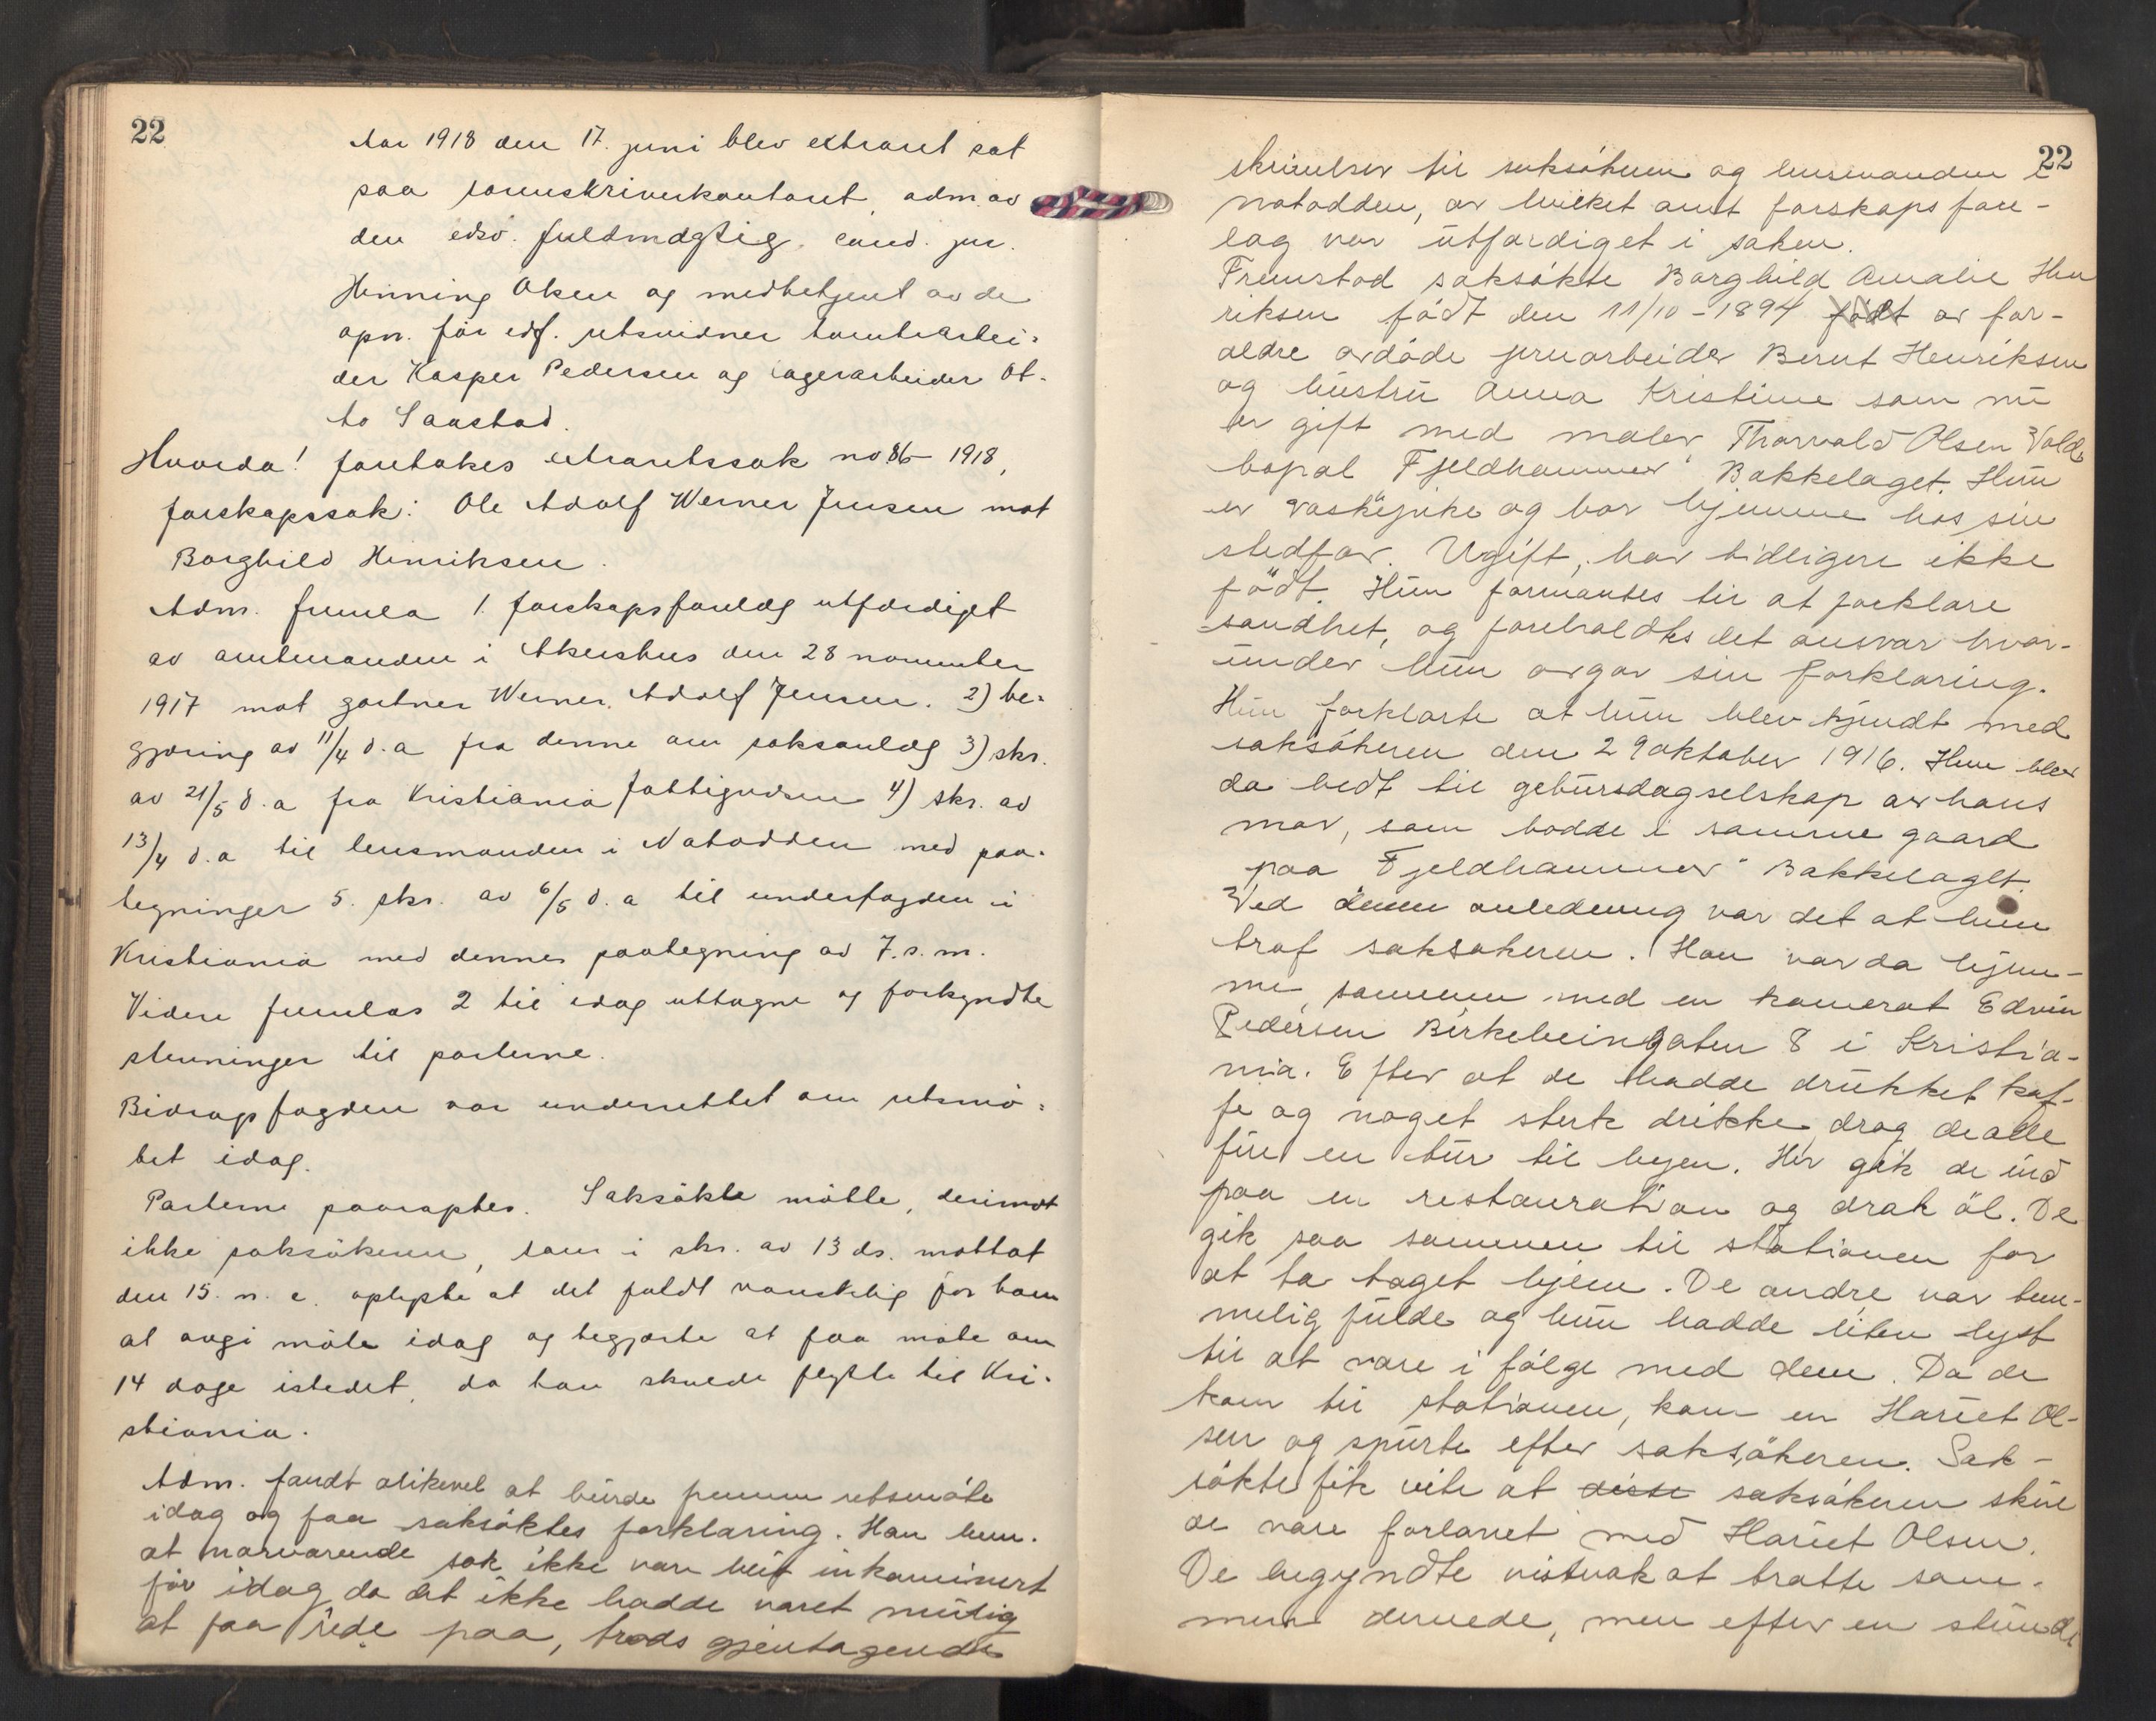 22
Aar 1918 den 17. juni blev extraret sat
paa sorenskriverkontoret, adm. av
den edsv. fuldmægtig, cand. jur.
Henning Olsen og medbetjent av de
opn. før edf. retsvidner tomtearbei-
der Kasper Pedersen og lagerarbeider Ot-
to Saastad.
Hvorda! foretokes extraretssak no 86 - 1918,
farskapssak: Ole Adolf Werner Jensen mot
Borghild Henriksen.
Adm. fremla 1. farskapsforelæg utfærdiget
av amtmanden i Akershus den 28 november
1917 mot gartner Werner Adolf Jensen. 2) be-
gjæring av 11/4 d.a fra denne om saksanlæg 3) skr.
av 21/5 d.a fra Kristiania fattigvæsen 4) skr. av
13/4 d.a til lensmanden i Notodden med paa-
tegninger 5. skr. av 6/5 d.a til underfogden i
Kristiania med dennes paategning av 7.s.m.
Videre fremlas 2 til idag uttagne og forkyndte
stevninger til parterne.
Bidragsfogden var underrettet om retsmø-
tet idag.
Parterne paaraaptes. Saksøkte møtte, derimot
ikke saksøkeren, som i skr. av 13 ds. mottat
den 15. n. e. oplyste at det faldt vanskelig for ham
at avgi møte idag og begjærte at faa møte om
14 dage istedet, da han skulde flytte til Kri-
stiania.
Adm. fandt alikevel at burde fremme retsmøte
idag og faa saksøktes forklaring. Han bem.
at nærværende sak ikke var blit inkaminert
før idag da det ikke hadde været mulig
at faa rede paa, trods gjentagende
22
skrivelser til saksøkeren og lensmanden i
Notodden, av hvilket amt farskapsfore-
læg var utfærdiget i saken.
Fremstod saksøkte Borghild Amalie Hen
riksen født den 11/10 - 1894 født av for-
ældre avdøde jernarbeider Bernt Henriksen
og hustru Anna Kristine som nu
er gift med maler Thorvald Olsen Vold,
bopæl "Fjeldhammer" Bækkelaget. Hun
er vaskepike og bor hjemme hos sin
stedfar. Ugift, har tidligere ikke
født. Hun formantes til at forklare
sandhet, og foreholdtes det ansvar hvor-
under hun avgav sin forklaring.
Hun forklarte at hun blev kjendt med
saksøkeren den 29 oktober 1916. Hun blev
da bedt til gebursdagselskap av hans
mor, som bodde i samme gaard
paa "Fjeldhammer" Bækkelaget.
Ved denne anledning var det at hun
traf saksøkeren. Han var da hjem-
me, sammen med en kamerat Edvin
Pedersen Birkebeingaten 8 i Kristia-
nia. Efter at de hadde drukket kaf-
fe og noget sterk drikke, drog de alle
fire en tur til byen. Her gik de ind
paa en restauration og drak øl. De
gik saa sammen til stationen for
at ta toget hjem. De andre var tem-
melig fulde og hun hadde liten lyst
til at være i følge med dem. Da de
kom til stationen, kom en Hariet Ol-
sen og spurte efter saksøkeren. Sak-
søkte fik vite at disse saksøkeren skul
de være forlovet med Hariet Olsen.
De begyndte vistnok at trætte sam-
men dernede, men efter en stund